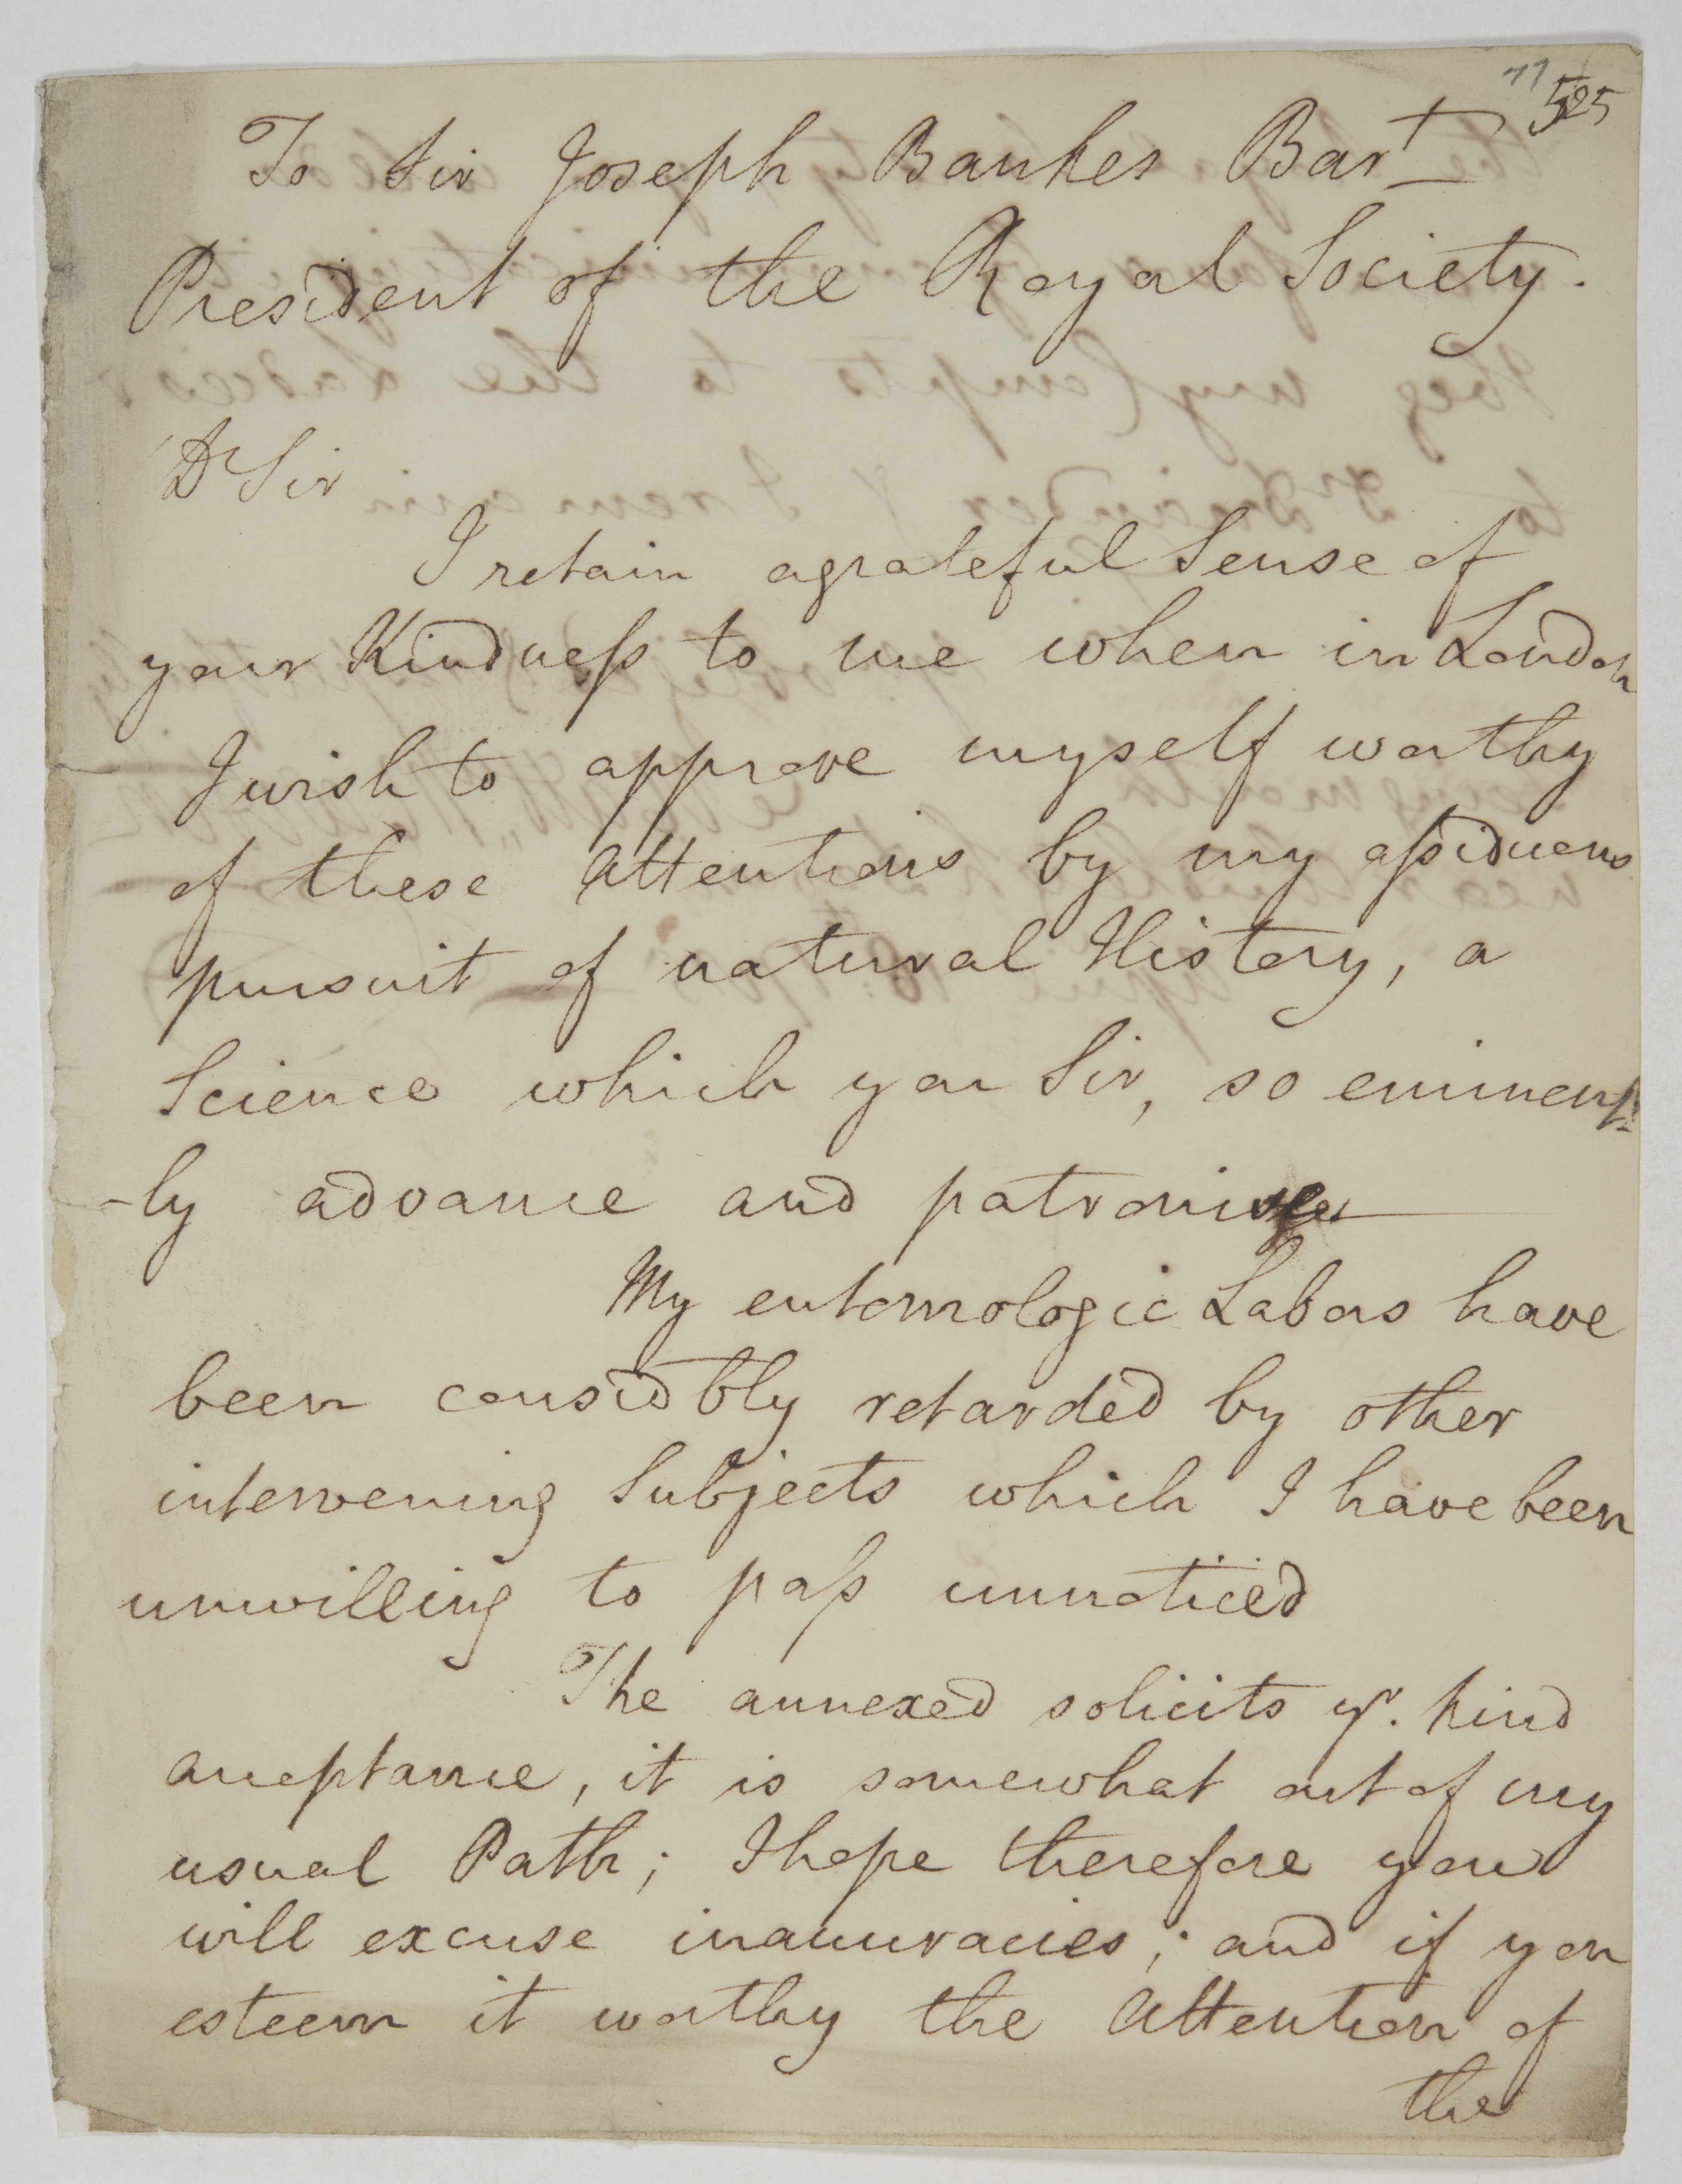 77 525
To Sir Joseph Bankes Bart
President of the Royal Society.
Dr Sir
I retain a grateful Sense of
your Kindness to me when in London
I wish to approve myself worthy
of these Attentions by my assiduous
pursuit of natural History, a
Science which you Sir, so eminent-
-ly advance and patronise
My entomologic Labors have
been considbly retarded by other
intervening Subjects which I have been
unwilling to pass unnoticed
The annexed solicits yr. kind
acceptance, it is somewhat out of my
usual Path; I hope therefore you
will excuse inaccuracies; and if you
esteem it worthy the Attention of
the